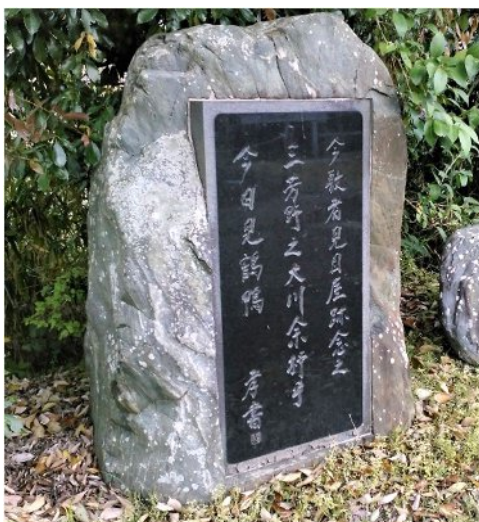 今敷者見目屋跡念之
三芳野之大川余杼乎
今日見鶴鴨　孝書